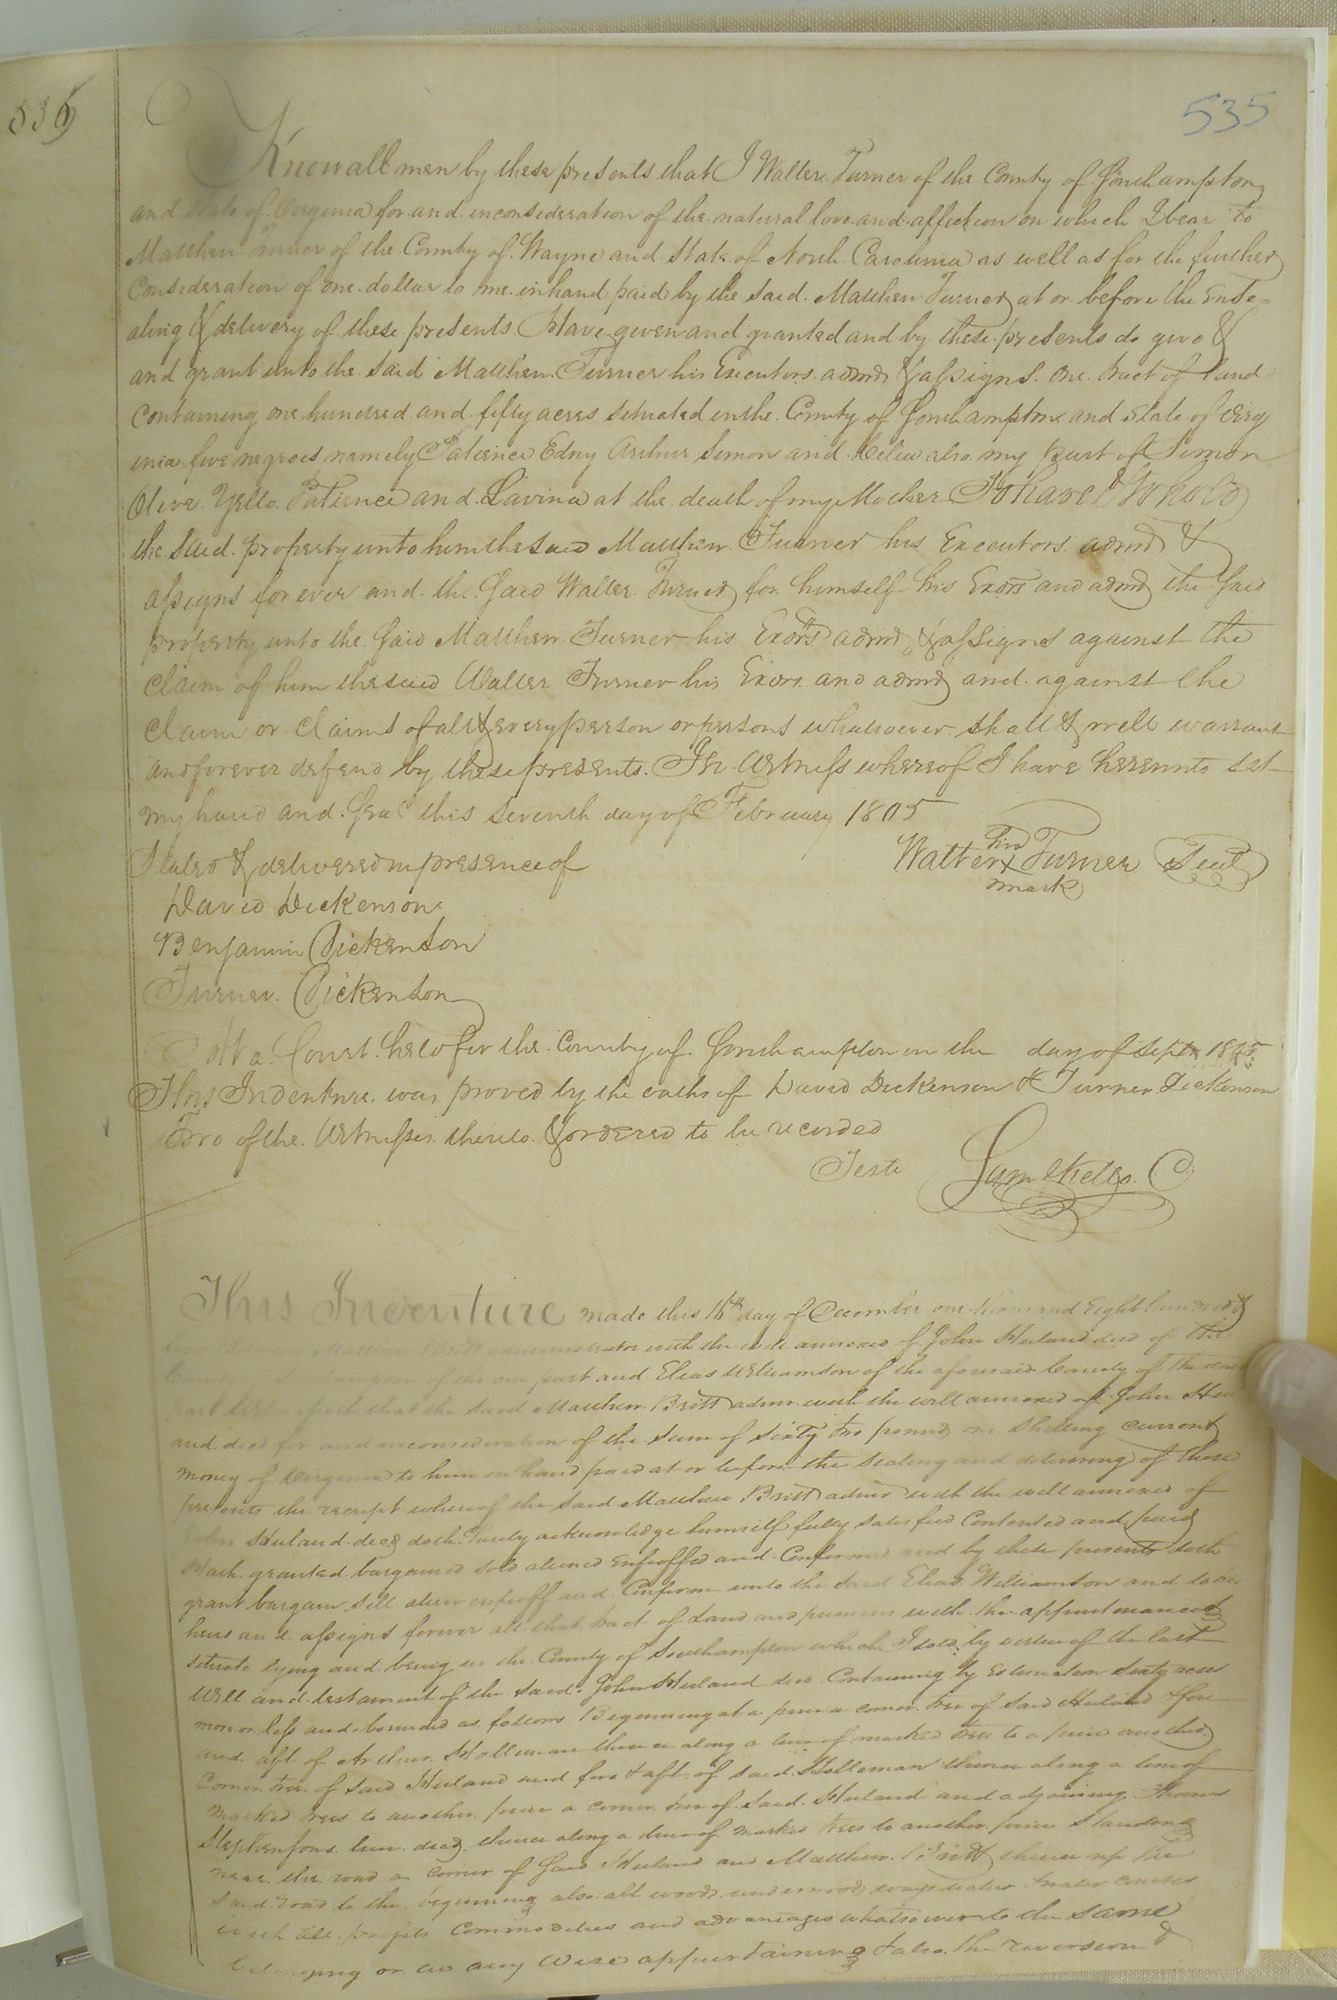 536
535
Know all men by these presents that I Walter Turner of the County of Southampton
and State of Virginia for and in consideration of the natural love and affection on which I bear to
Matthew Turner of the County of Wayne and State of North Carolina as well as for the further
Consideration of one dollar to me in hand paid by the said Matthew Turner at or before the Ense-
aling & delivery of these presents Have given and granted and by these presents do give &
and grant unto the said Matthew Turner his Executors admrs & assigns one tract of Land
Containing one hundred and fifty acres situated in the County of Southampton and State of Virg
inia five negroes namely Patience Edny Arthur Simon and Celia also my part of Simon
Olive Yello Patience and Lavina at the death of my Mother To have & to hold
the said property unto him the said Matthew Turner his Executors admrs &
assigns for ever and the said Walter Turner for himself his Exors and admrs the said
property unto the said Matthew Turner his Exors admrs & assigns against the
Claim of him the said Walter Turner his Exors and admrs and against the
Claim or Claims of all & every person or persons whatsoever shall & will warrant
and forever defend by these presents. In Witness whereof I have hereunto set
my hand and seal this seventh day of February 1805
his
Sealed & delivered in presence of Walter X Turner Seal
mark
David Dickenson
Benjamin Dickenson
Turner Dickenson
At a Court held for the County of Southampton on the day of Septr 1805
This Indenture was proved by the oaths of David Dickenson & Turner Dickenson
Two of the Witnesses thereto & ordered to be recorded
Teste Saml Kello C
This Indenture made this 16th day of December one thousand Eight hundred &
Matthew Britt administrator with the will annexed of John Heuland decd of the
of the one part and Elias Williamson of the aforesaid County of the other
part Witnesseth that the said Matthew Britt admr with the will annexed of John Heu
and decd for and in consideration of the sum of sixty two pounds one shilling current
money of Virginia to him in hand paid at or before the sealing and delivering of these
presents the receipt whereof the said Matthew Britt admr with the will annexed of
John Heuland decd doth hereby acknowledge himself fully satisfied Contented and paid
Hath granted bargained sold aliened Enfeoffed and Confirmed and by these presents doth
grant bargain sell alien enfeoff and Confirm unto the said Elias Williamson and to his
heirs and assigns forever all that tract of Land and premises with the appurtenances
situate lying and being in the County of Southampton which I sold by virtue of the last
Will and testament of the said John Heuland decd Containing by Estimation sixty acres
more or less and bounded as follows Beginning at a pine a corner tree of said Heuland & fore
and aft of Arthur Holleman thence along a line of marked trees to a pine another
Corner tree of said Heuland and fore & aft of said Holleman thence along a line of
marked trees to another pine a corner tree of said Heuland and adjoining Thomas
Stephensons line decd thence along a line of marked trees to another pine standing
near the road a corner of said Heuland and Matthew Britt thence up the
said road to the beginning also all woods underwoods ways waters & water Courses
with all profits Commodities and advantages whatsoever to the same
belonging or in any wise appertaining & also the reversion &